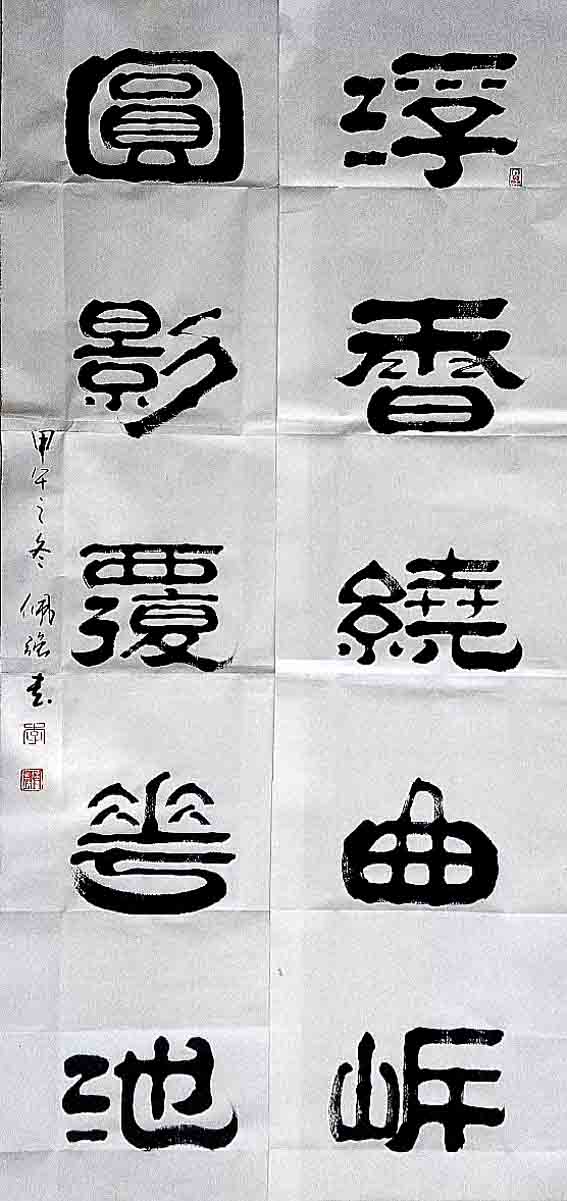 浮香繞曲岸
圓影覆華池
甲午之冬 佩强书